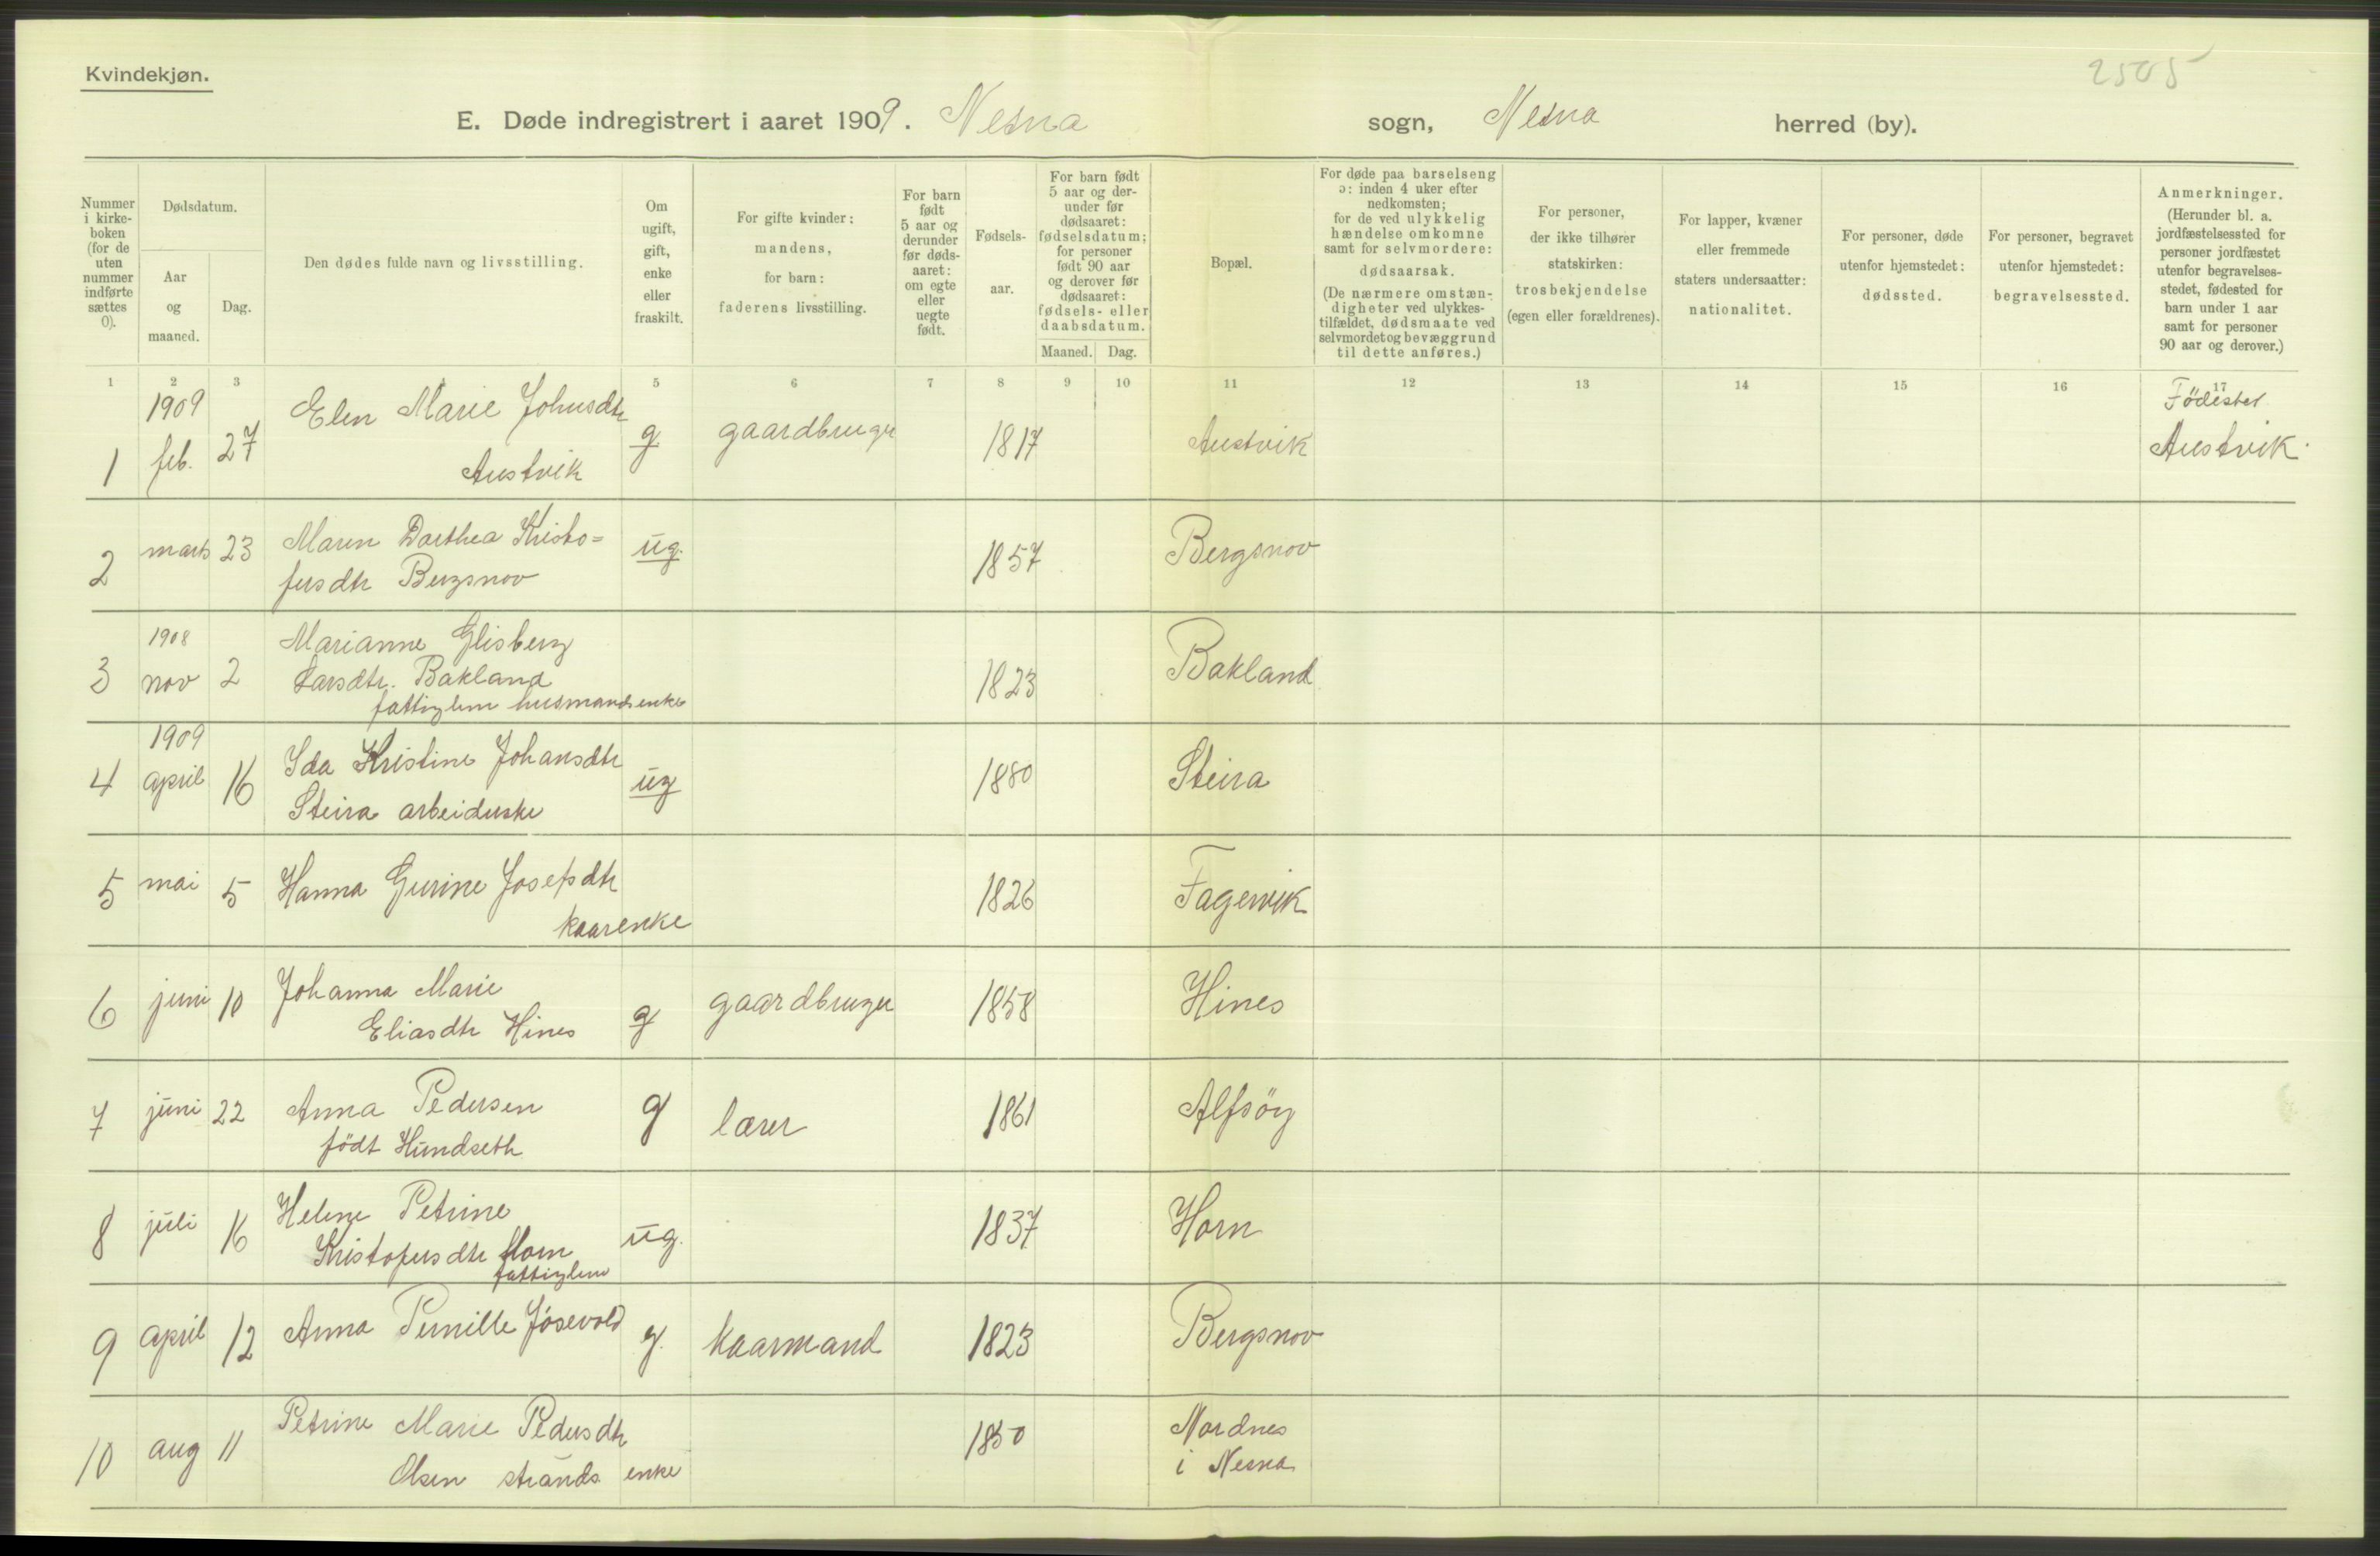 Kvindekjøn.
2505
E. Døde indregistrert i aaret 1909. Nesna sogn, Nesna herred (by).
Nummer i kirke- boken (for de uten nummer indførte sættes 0).
Dødsdatum.
Aar og maaned.
Dag.
Den dødes fulde navn og livsstilling.
Om ugift, gift, enke eller fraskilt.
For gifte kvinder: mandens, for barn: faderens livsstilling.
For barn født 5 aar og derunder før døds- aaret: om egte eller uegte født.
Fødsels- aar.
For barn født 5 aar og der- under før dødsaaret: fødselsdatum; for personer født 90 aar og derover før dødsaaret: fødsels- eller daabsdatum.
Maaned. Dag.
Bopæl.
For døde paa barselseng ɔ: inden 4 uker efter nedkomsten; for de ved ulykkelig hændelse omkomne samt for selvmordere: dødsaarsak. (De nærmere omstæn- digheter ved ulykkes- tilfældet, dødsmaate ved selvmordet og bevæggrund til dette anføres.)
For personer, der ikke tilhører statskirken: trosbekjendelse (egen eller forældrenes).
For lapper, kvæner eller fremmede staters undersaatter: nationalitet.
For personer, døde utenfor hjemstedet: dødssted.
For personer, begravet utenfor hjemstedet: begravelsessted.
Anmerkninger. (Herunder bl. a. jordfæstelsessted for personer jordfæstet utenfor begravelses- stedet, fødested for barn under 1 aar samt for personer 90 aar og derover.)
1 2 3 5 6 7 8 9 10 11 12 13 14 15 16 17
1 1909 feb. 27 Elen Marie Johnsdtr Austvik g gaardbruger 1817 Austvik Födested Austvik.
2 marts 23 Maren Dorthea Kristo=
fersdtr Bergsnov ug. 1857 Bergsnov
3 1908 nov 2 Marianne Glisberg
Larsdtr. Bakland
fattiglem husmandsenke 1823 Bakland
4 1909 april 16 Ida Kristine Johansdtr
Steira arbeiderske ug 1880 Steira
5 mai 5 Hanna Gurine Josefsdtr
kaarenke 1826 Fagervik
6 juni 10 Johanna Marie
Eliasdtr Hines g gaardbruger 1858 Hines
7 juni 22 Anna Pedersen
födt Hundseth g lærer 1861 Alfsöy
8 juli 16 Helene Petrine
Kristofersdtr Horn
fattiglem ug. 1837 Horn
9 april 12 Anna Pernille Jösevold g. kaarmand 1823 Bergsnov
10 aug 11 Petrine Marie Pedersdtr
Olsen strands enke 1850 Nordnes
i Nesna